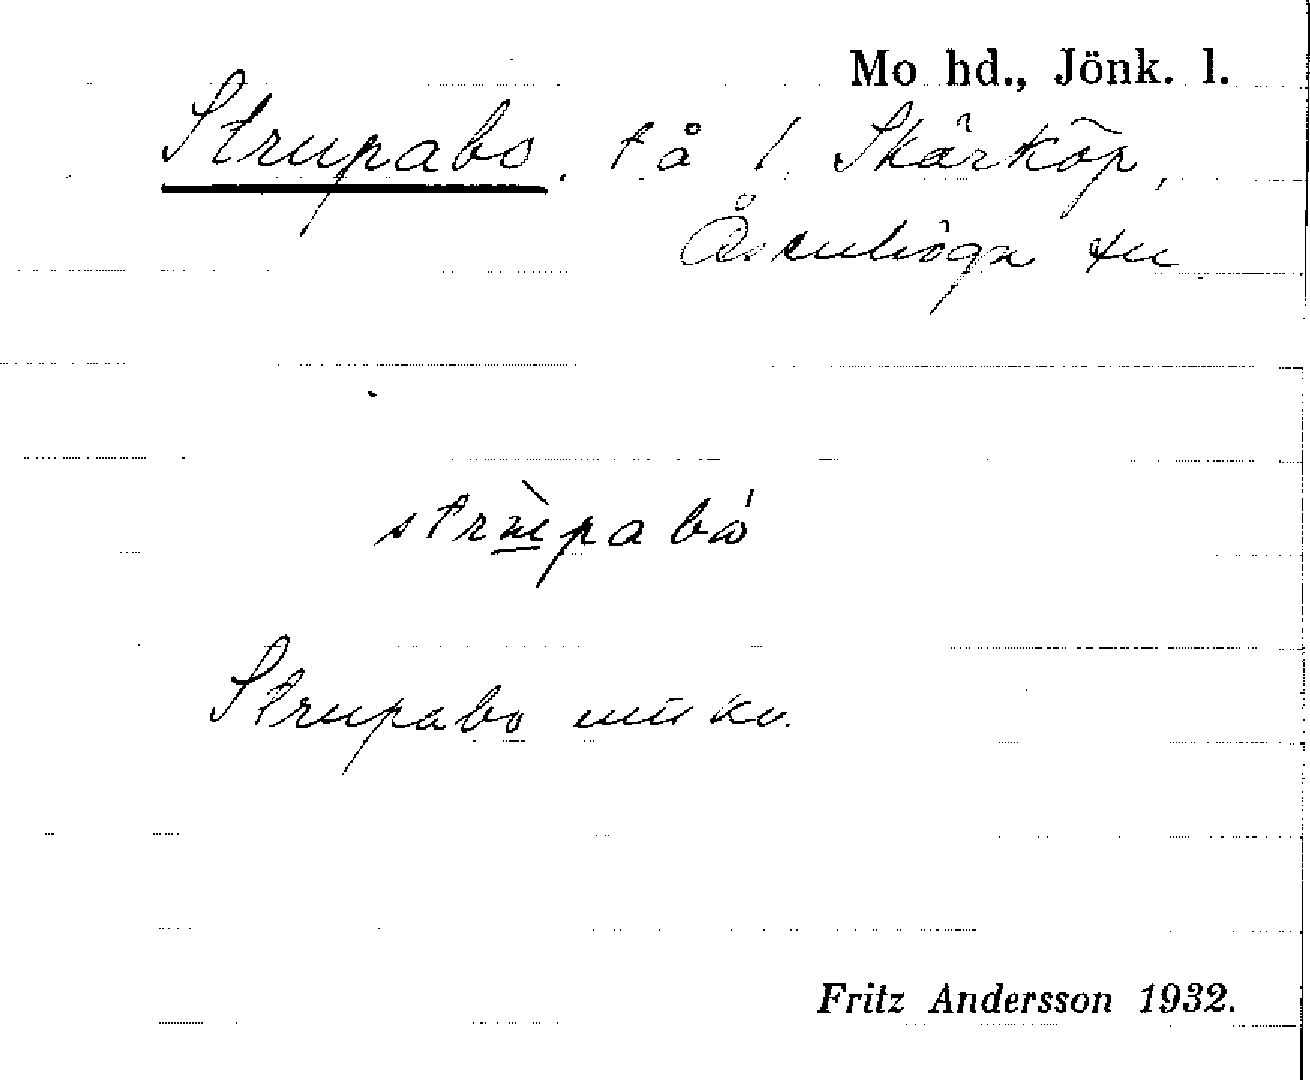 Mo hd., Jönk. l.
Strupabo. t å / Skärköp,
Åsenhöga sn
strupabo
Strupabo
Fritz Andersson 1932.